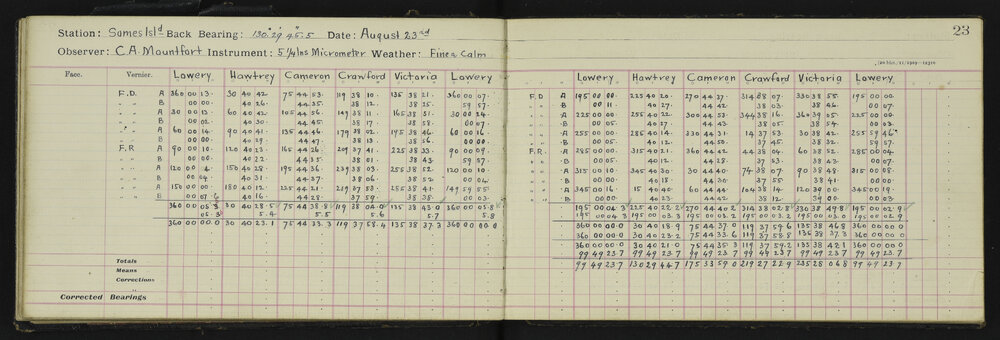 Station: Somes Isld Back Bearing: 130° 29' 45.5 Date: August 23rd
23
Observer: C.A. Mountfort Instrument: 5" Micrometer Weather: Fine & Calm
Face. Vernier. Lowery Hawtrey Cameron Crawford Victoria Lowery
Lowery Hawtrey Cameron Crawford Victoria Lowery
F.D. A 360 00 13 30 40 42 75 44 53 119 38 10 135 38 21 360 00 07
B 00 00 40 26 44 35 38 12 38 25 59 57
A 30 00 13 60 40 42 105 44 56 149 38 11 165 38 31 30 00 24
B 00 02 40 30 44 45 38 17 38 58 00 07
A 60 00 14 90 40 41 135 44 46 179 38 02 195 38 46 60 00 16
B 00 00 40 29 44 47 38 13 38 56 00 00
F.R A 90 00 10 120 40 23 165 44 26 209 37 41 225 38 33 90 00 09
B 00 00 40 22 44 35 38 01 38 43 59 57
A 120 00 4 150 40 28 195 44 36 239 38 03 255 38 52 120 00 10
B 00 04 40 31 44 37 38 06 38 52 00 04
A 150 00 00 180 40 12 225 44 21 219 37 53 285 38 41 149 59 55
B 00 07 40 16 44 28 37 59 38 38 00 03
360 00 05.8 30 40 28.5 75 44 38.8 119 38 04.0 135 38 43.0 360 00 05.8
05.8 5.4 5.5 5.6 5.7 5.8
360 00 00.0 30 40 23.1 75 44 33.3 119 37 58.4 135 38 37.3 360 00 00.0
F.D A 195 00 00 225 40 20 270 44 27 314 38 07 330 38 55 195 00 00
B 00 11 40 27 44 42 38 03 38 46 00 07
A 225 00 00 255 40 22 300 44 53 344 38 16 360 39 05 225 00 00
B 00 00 40 27 44 43 38 05 38 54 00 03
A 255 00 00 285 40 14 330 44 31 14 37 53 30 38 42 255 59 46
B 00 00 40 12 44 50 37 45 38 32 59 57
F.R. A 285 00 00 315 40 21 360 44 42 44 38 04 60 38 52 285 00 04
B 00 05 40 12 44 28 37 53 38 42 00 07
A 315 00 10 345 40 30 30 44 40 74 38 07 90 38 48 315 00 08
B 00 00 40 18 44 30 37 55 38 41 00 00
A 345 00 16 15 40 40 60 44 44 104 38 14 120 39 00 345 00 19
B 00 00 40 23 44 42 38 12 39 00 00 03
195 00 04.3 225 40 22.2 270 44 40.2 314 38 02.8 330 38 49.8 195 00 02.9
195 00 04.3 195 00 03.3 195 00 03.2 195 00 03.2 195 00 03.0 195 00 02.9
360 00 00.0 30 40 18.9 75 44 37.0 119 37 59.6 135 38 46.8 360 00 00.0
360 00 00.0 30 40 23.2 75 44 33.6 119 37 58.8 135 38 37.3 360 00 00.0
360 00 00.0 30 40 21.0 75 44 35.3 119 37 59.2 135 38 42.1 360 00 00.0
99 49 23.7 99 49 23.7 99 49 23.7 99 49 23.7 99 49 23.7 99 49 23.7
99 49 23.7 130 29 44.7 175 33 59.0 219 27 22.9 235 28 06.8 99 49 23.7
Totals
Means
Corrections
Corrected Bearings